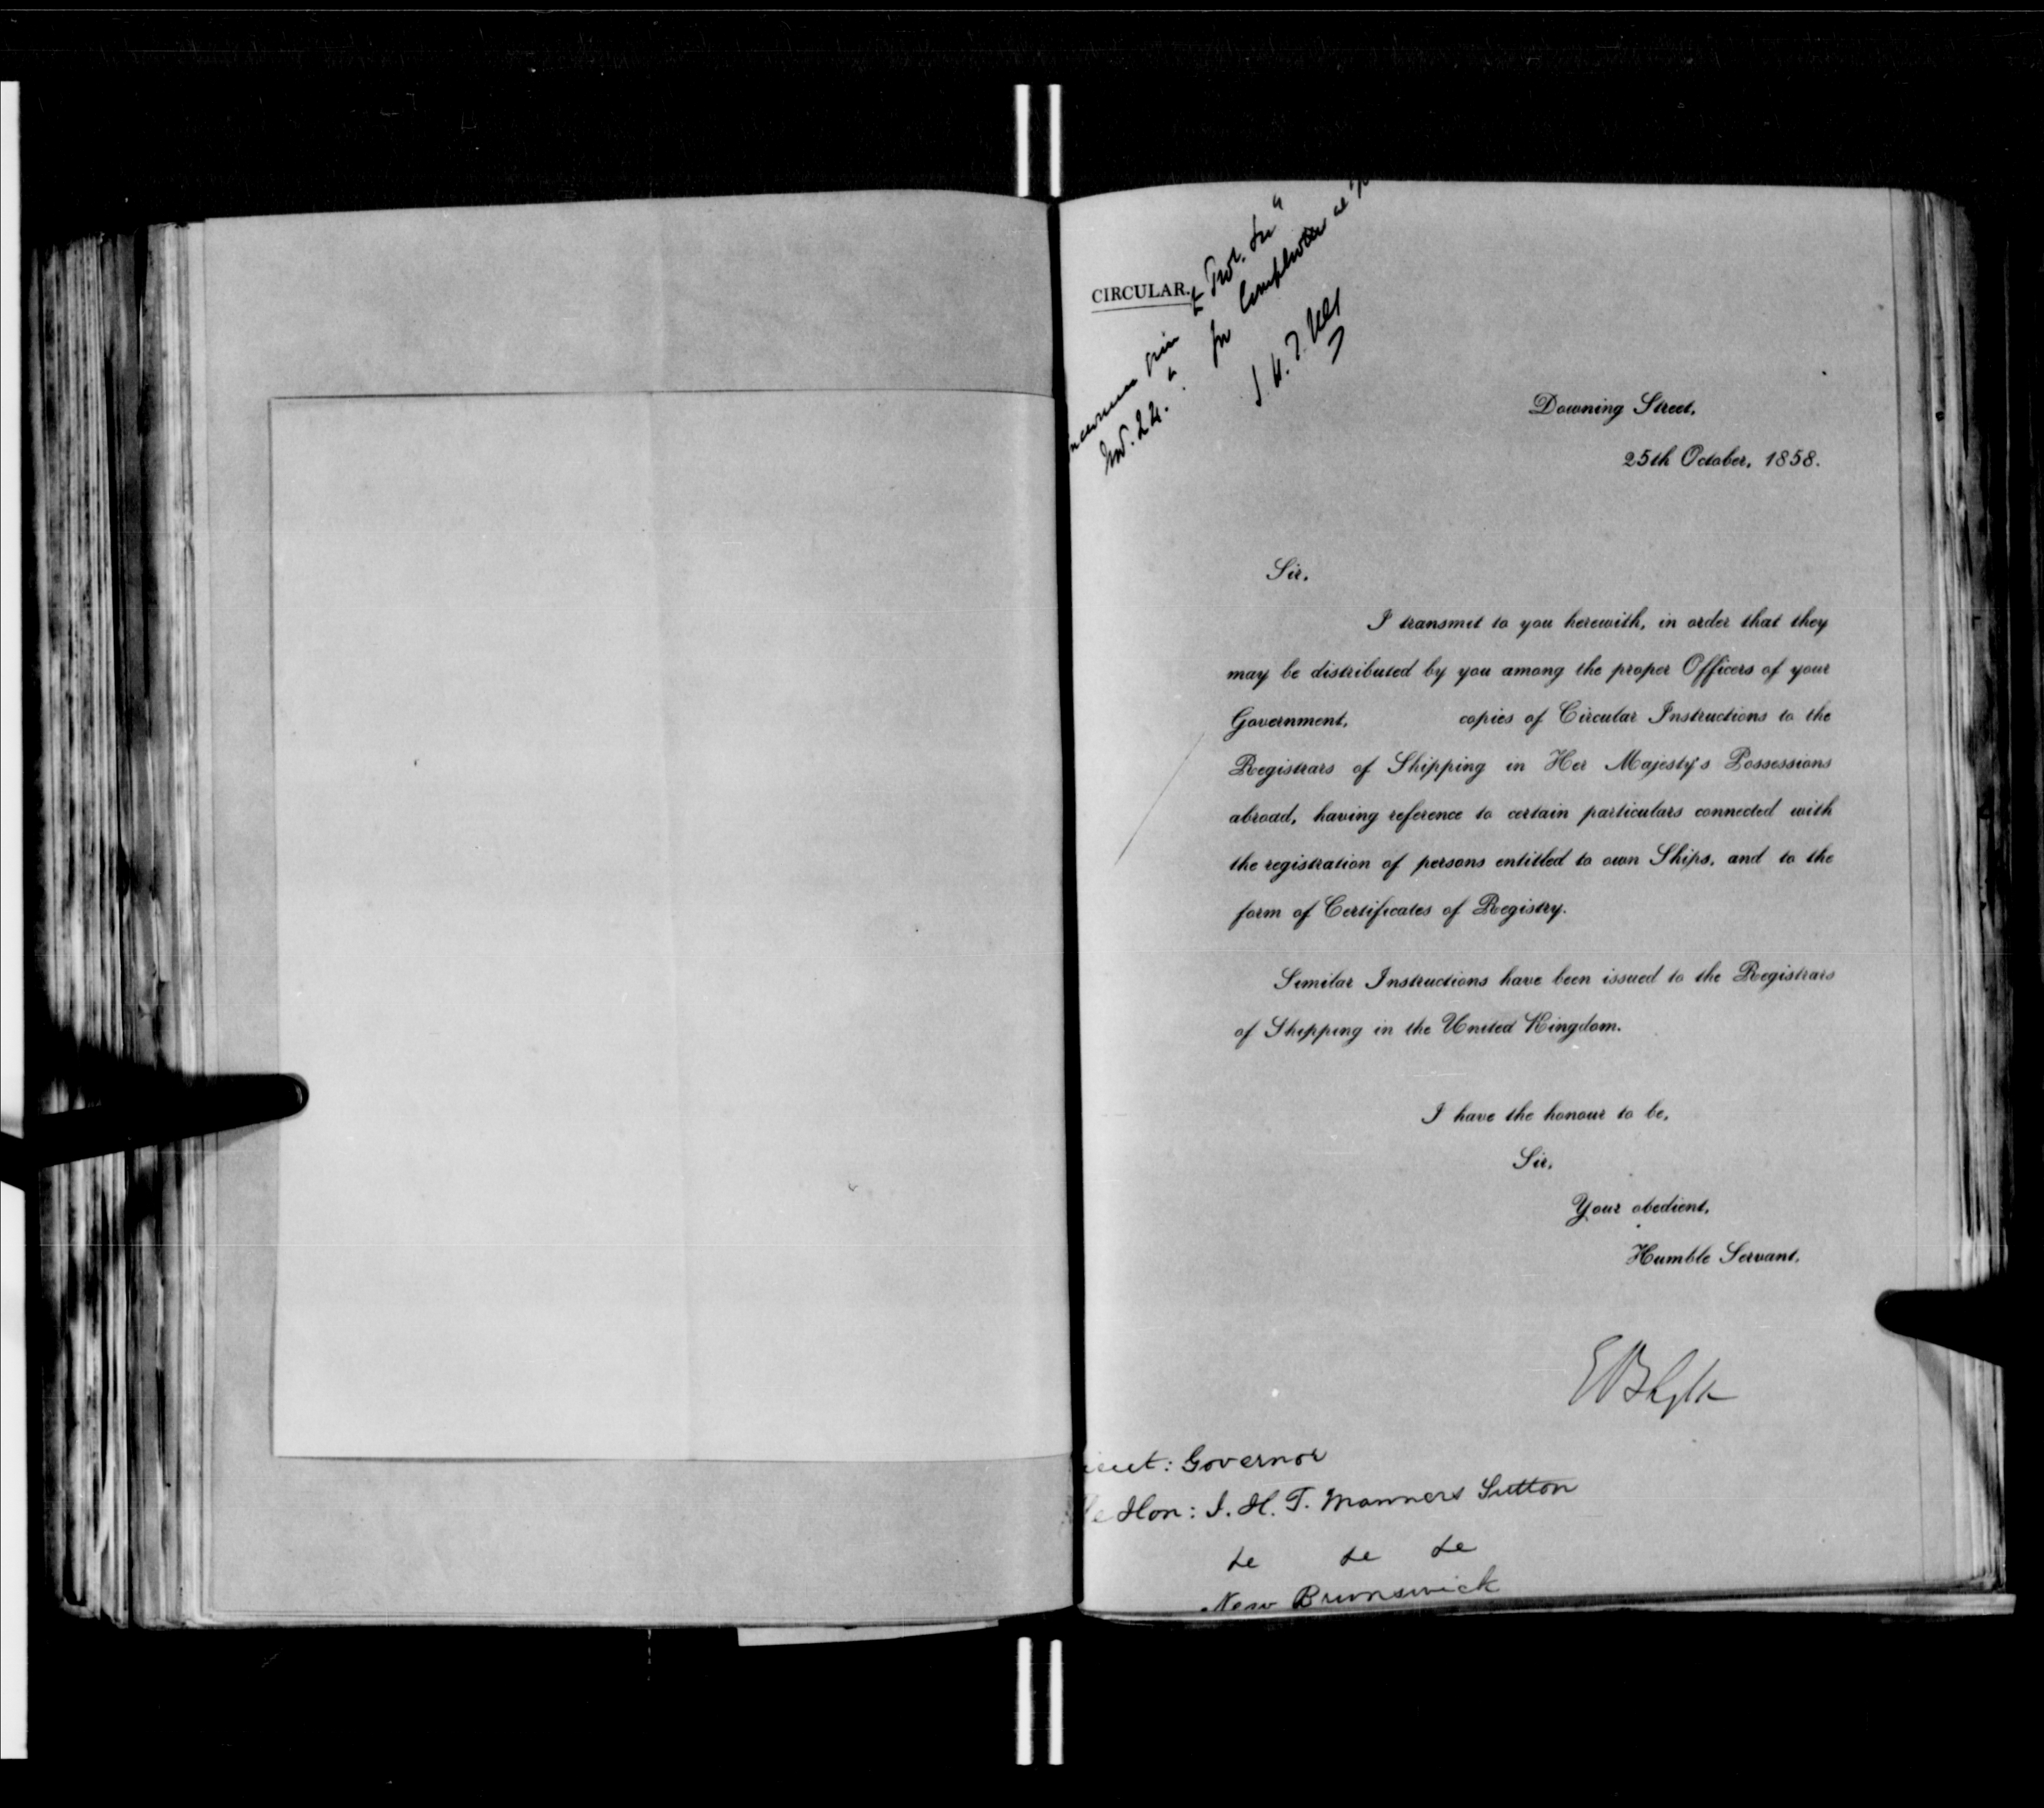 CIRCULAR.
Nov. 24.
for
Downing Street,
25th October, 1858.
Sir,
I transmit to you herewith, in order that they
may be distributed by you among the proper Officers of your
Government, copies of Circular Instructions to the
Registrars of Shipping in Her Majesty's Possessions
abroad, having reference to certain particulars connected with
the registration of persons entitled to own Ships, and to the
form of Certificates of Registry.
Similar Instructions have been issued to the Registrars
of Shipping in the United Kingdom.
I have the honour to be,
Sir,
Your obedient,
Humble Servant,
EBLytton
Lieut: Governor
The Hon: J. H. T. Manners Sutton
&c &c &c
New Brunswick